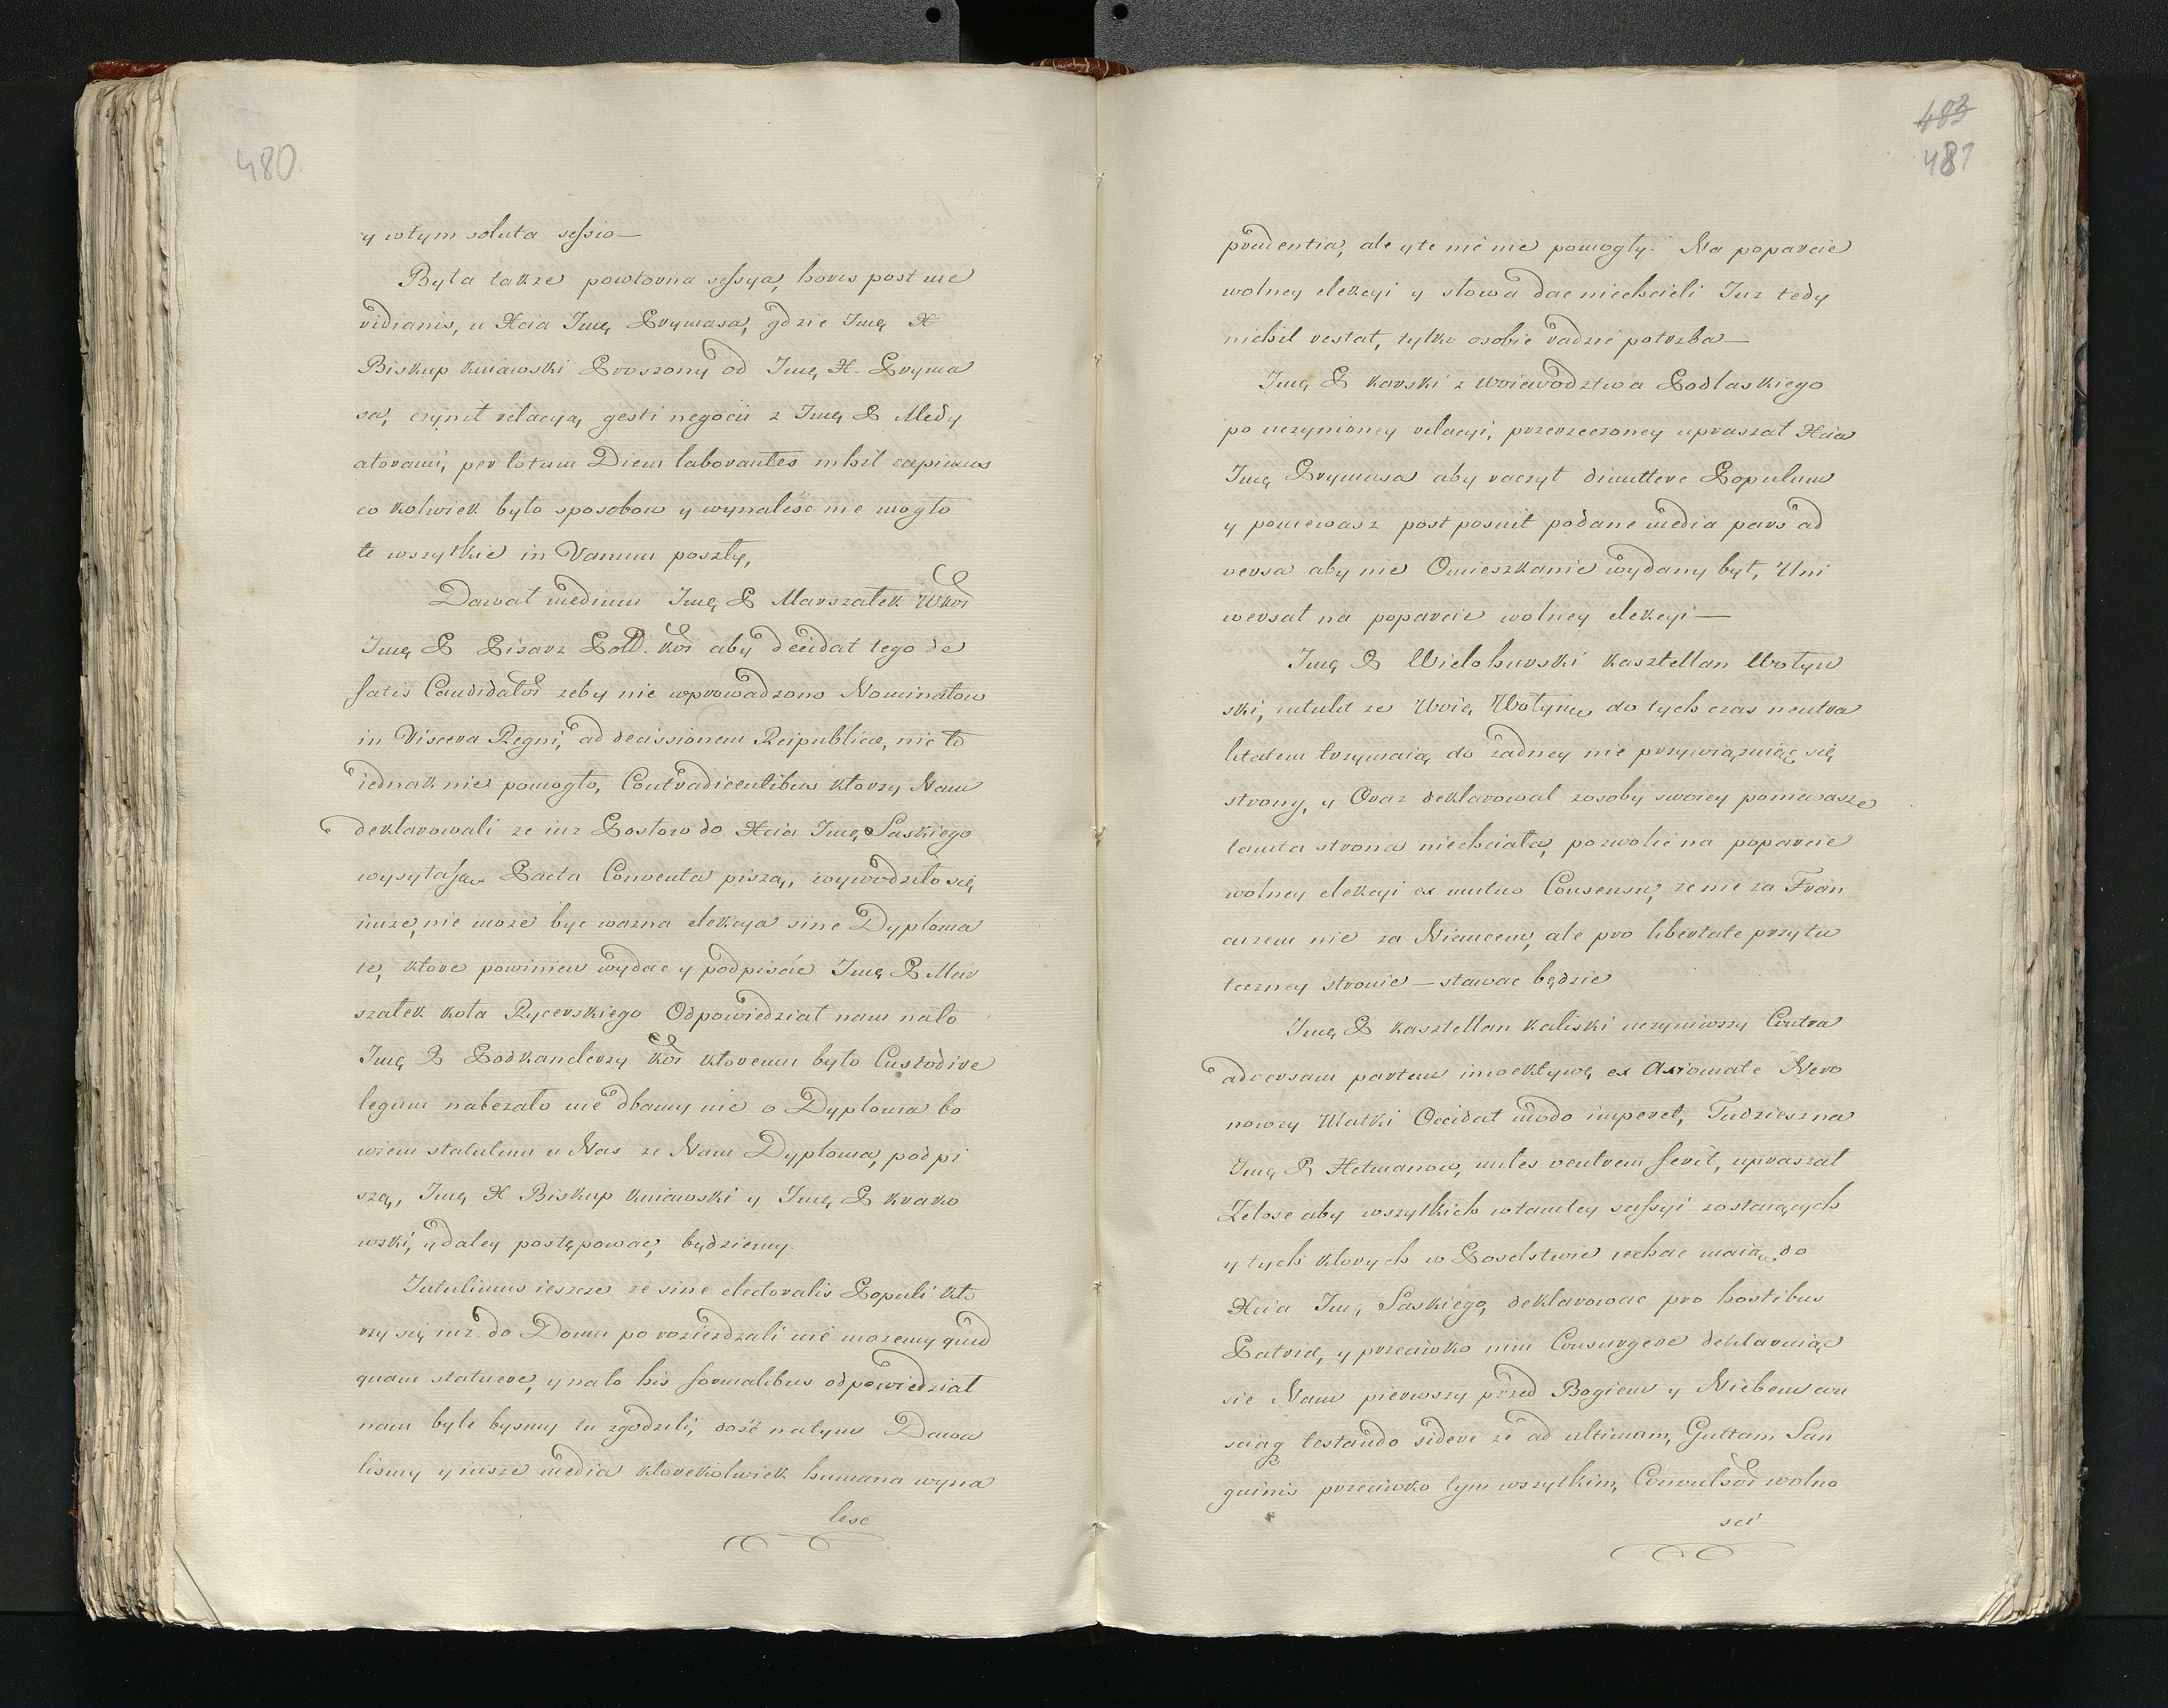 480
y wtym soluta sessio—
Była także powtorna sessya, horis post me
ridianis, u Xcia Jmę Prymasa, gdzie Jmę X
Biskup kuiawski Proszony od Jmę X. Pryma
sa, czynił relacyą, gesti negocii z Jmę P Medy
atorami, per totum Diem laborantes nihil cepimus
co kolwiek było sposobow y wynaleśc nie mogło
te wszytkie in Vanum poszły,
Dawał medium Jmę P Marszałek Wkoī
Jmę P Pisarz Poll. koī aby decidat tego de
satis Candidatoī zeby nie wprowadzono Nominatow
in Viscera Regni, ad decissionem Reipublicæ, nic to
iednak nie pomogło, Contradicentibus ktorzy Nam
deklarowali ze iuz Posłow do Xcia Jmę Saskiego
wysyłaią Pacta Conventa piszą, wywodziło się
iuze, nie moze byc wazna elekcya sine Dyploma
te, ktore powinien wydac y podpisac Jmę P Mar
szałek koła Rycerskiego Odpowiedział nam nato
Jmę P Podkanclerzy koī ktoremu było Custodire
legum nalezało nie dbamy nic o Dyploma bo
wiem statutum u Nas ze Nam Dyploma, podpi
szą, Jmę X Biskup kuiawski y Jmę P krako
wski, y daley postępowac, będziemy.
Intulimus ieszcze ze sine electoralis Populi kto
rzy się iuz do Domu po rozieżdzali nie mozemy quid
quam statuere, y nato his formalibus odpowiedział
nam byle bysmy tu zgodzili, dość natym Dawa
lismy y insze media ktorekolwiek humana wyna
lesc
483
481
prudentia, ale y te nic nie pomogły. Na poparcie
wolney elekcyi y słowa dac niechcieli Juz tedy
nichil restat, tylko osobie radzic potrzba—
Jmę P karski z Woiawodztwa Podlaskiego
po uczynioney relacyi, przerzeczoney upraszał Xcia
Jmę Prymasa aby raczył dimittere Populum
y poniewasz post posuit podane media pars ad
versa aby nie Omieszkanie wydany był, Uni
wersał na poparcie wolney elekcyi—
Jmę P Wielohurski kasztellan Wołyn
ski, intulit ze Woię Wołynu do tych czas neutra
litatem trzymaią do żadney nie przywiązuiąc się
strony, y Oraz deklarował zosoby swoiey poniewasze
tamta strona niechciała, pozwolic na poparcie
wolney elekcyi ex mutuo Consensu, ze nie za Fran
cuzem nie za Niemcem, ale pro libertate przytu
teczney stronie—stawac będzie
Jmę P kasztellan kaliski uczyniwszy Contra
adversam partem inwektywę ex Axiomate Nero
nowey Matki Occidat modo imperet, Tudzieszna
Jmę P Hetmanow, miles ventrem ferit, upraszał
Zelose aby wszytkich wtamtey sessyi zostaiących
y tych ktorych w Poselstwie iechac maią do
Xcia Jmę Saskiego, deklarowac pro hostibus
Patriæ, y przeciwko nim Consurgere deklaruiąc
sie Nam pierwszy przed Bogiem y Niebem wu
testando sidere ze ad ultimam, Guttam San
guinis przeciwko tym wszytkim, Convulsoī wolno
sci